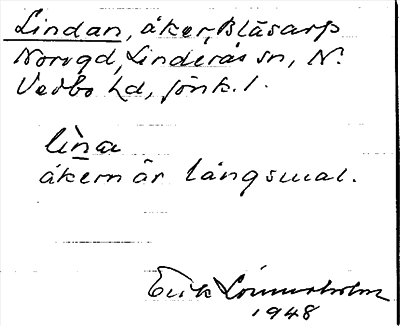 Lindan, åker, Blåsarp
Norrgd, Linderås sn, N.
Vedbo hd, Jönk. l.
lìna
åkern är långsmal.
Erik Lönnerholm
1948